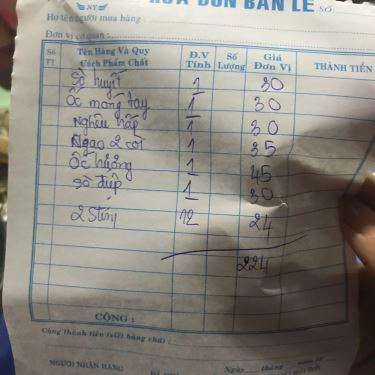 HÓA ĐƠN BÁN LẺ SỐ:
NT
Họ tên người mua hàng
Đơn vị cơ quan:
Số TT Tên Hàng Và Quy Cách Phẩm Chất Đ.V Tính Số Lượng Giá Đơn Vị THÀNH TIỀN
Sò huyết 1 30
Ốc móng tay 1 30
Nghêu hấp 1 30
Ngao 2 cồi 1 35
Ốc hương 1 45
Sò điệp 1 30
12 24
224
CỘNG :
Cộng thành tiền (viết bằng chữ) :
NGƯỜI NHẬN HÀNG
Ngày tháng năm 20